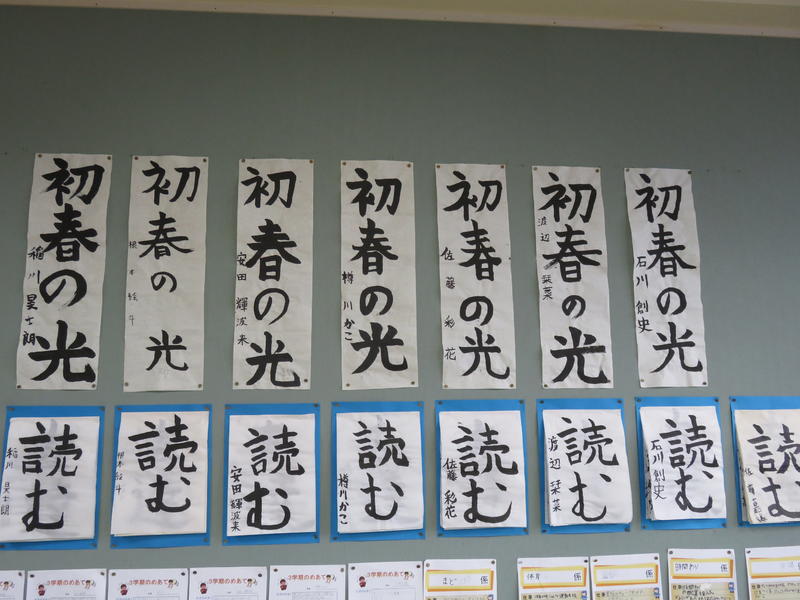 初春の光
稲川 昊士朗
初春の光
根本 絵斗
初春の光
安田 輝波来
初春の光
樽川かこ
初春の光
佐藤 彩花
初春の光
渡辺 栞菜
初春の光
石川 創史
読む
稲川 昊士朗
読む
根本絵斗
読む
安田 輝波来
読む
樽川かこ
読む
佐藤 彩花
読む
渡辺 栞菜
読む
石川 創史
読む
3学期のめあて
3学期のめあて
3学期のめあて
3学期のめあて
3学期のめあて
まど 係
体育 係
係
時間わり 係
係